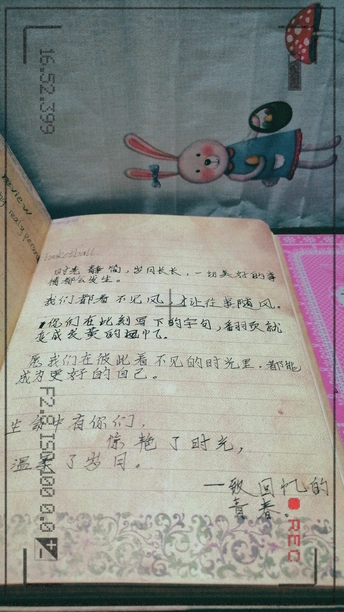 review
16:52.399
basketball
时光静简，岁月长长，一切美好的事
情都会发生。
我们都看不见风，才让往事随风。
你们在此刻写下的字句，翻页就
变成发黄的记忆。
愿我们在彼此看不见的时光里，都能
成为更好的自己。
生命中有你们，
惊艳了时光，
温柔了岁月。
—致回忆的
青春
REC